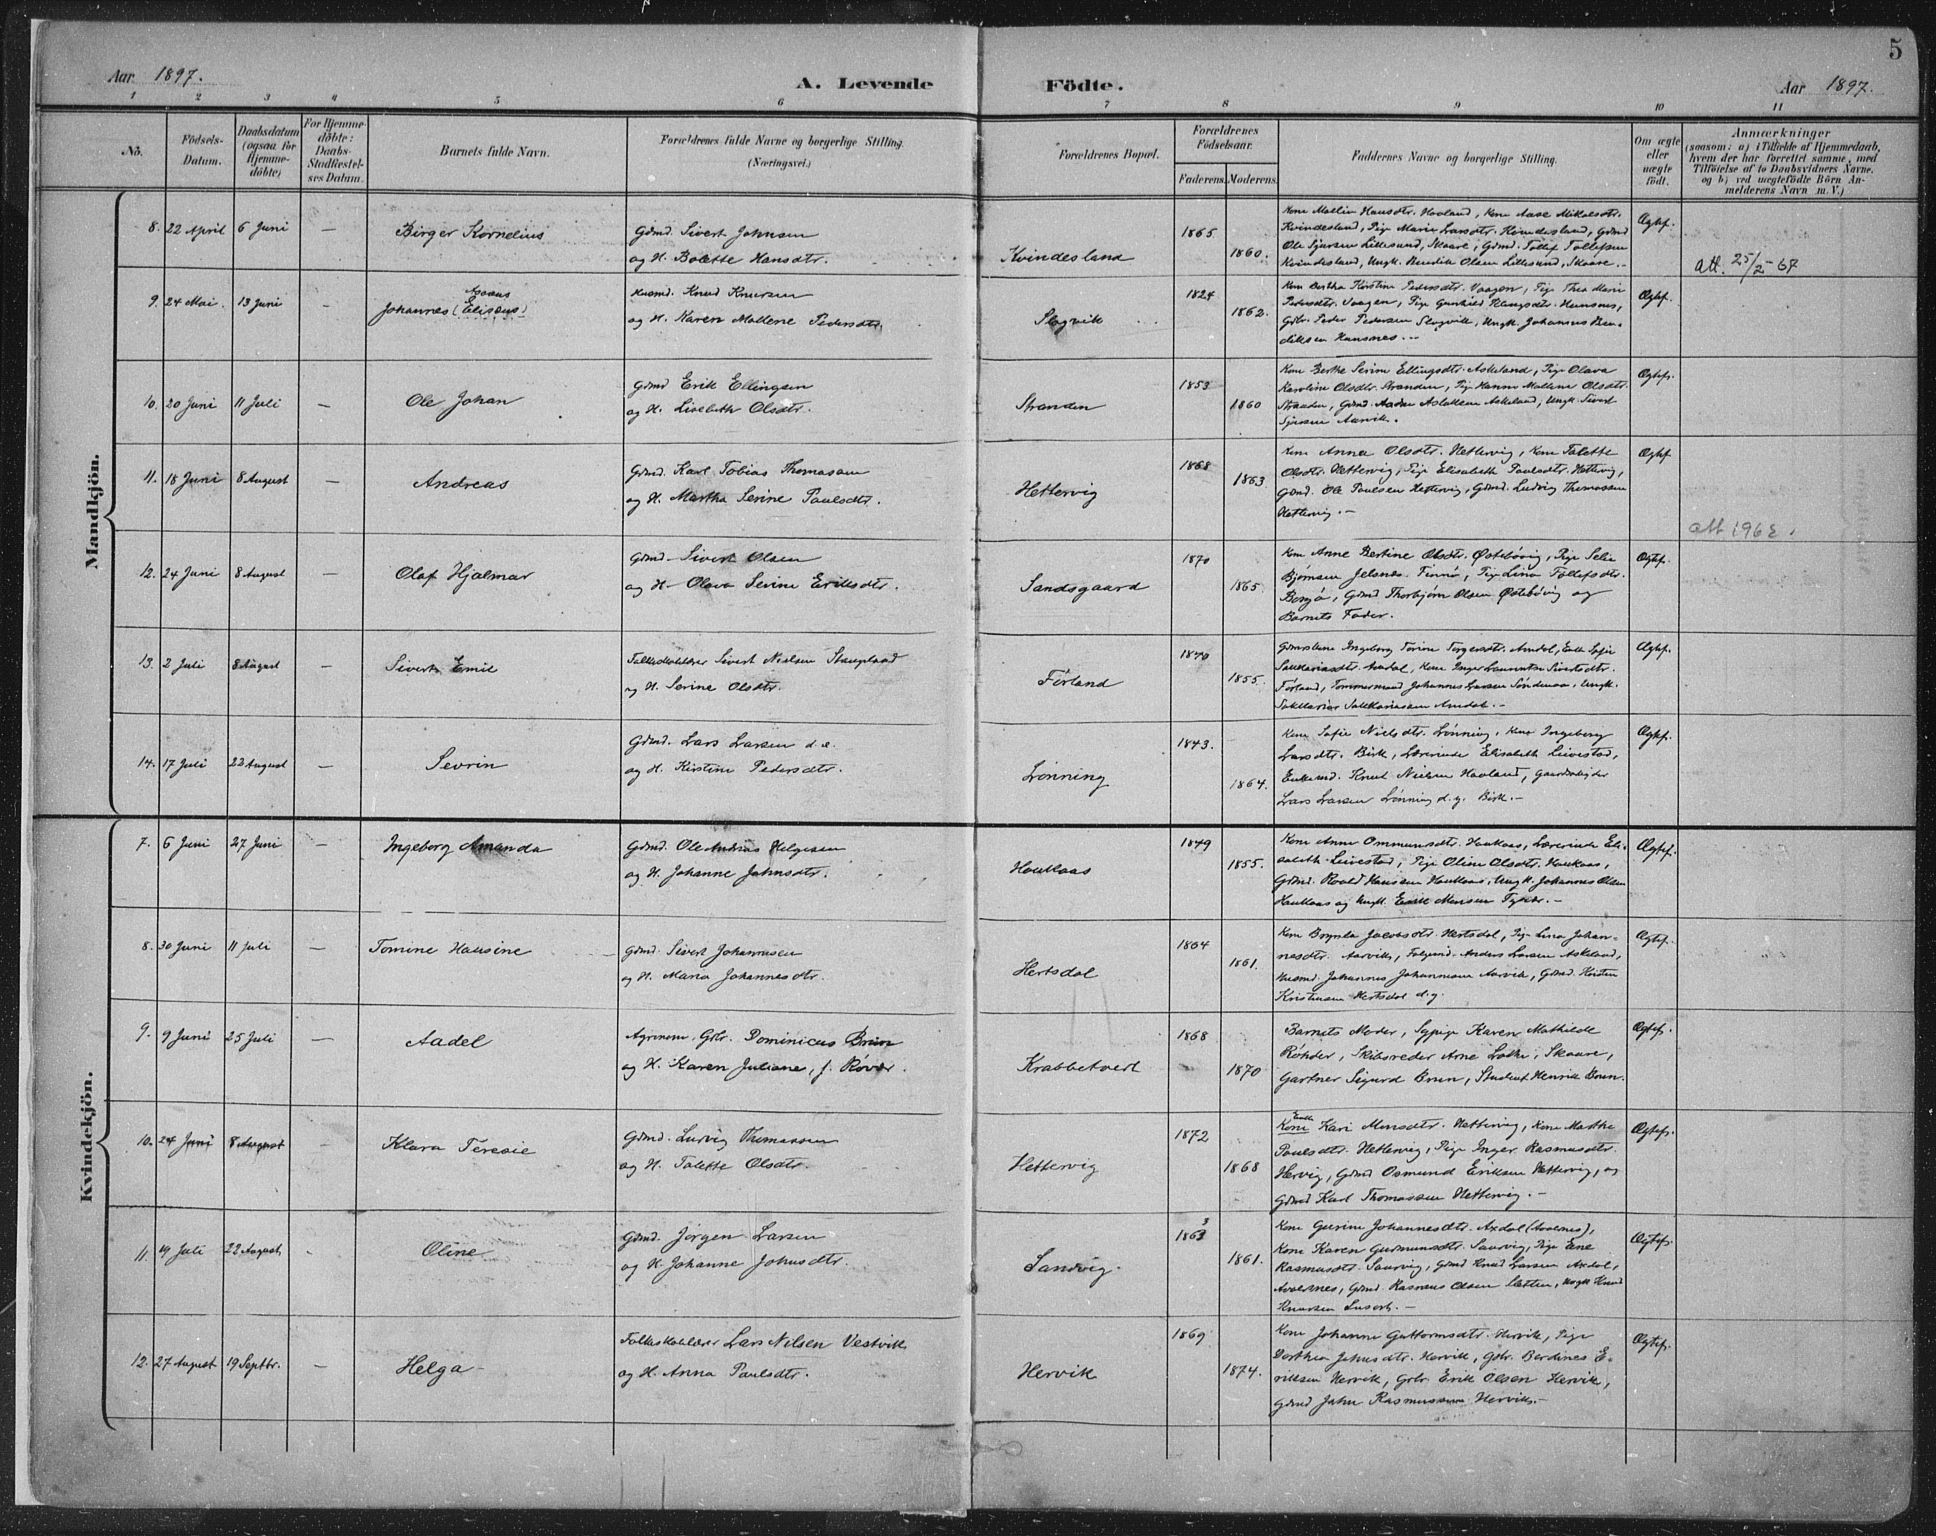 5
Aar 1897. A. Levende Födte. Aar 1897.
1 2 3 4 5 6 7 8 9 10 11
No. Födsels-Datum. Daabsdatum (ogsaa for Hjemme-döbte) For Hjemme-döbte: Daabs-Stadfæstel-ses Datum. Barnets fulde Navn. Forældrenes fulde Navne og borgerlige Stilling. (Næringsvei.) Forældrenes Bopæl. Forældrenes Födselsaar. Faderens. Moderens. Faddernes Navne og borgerlige Stilling. Om ægte eller uægte födt. Anmærkninger
(saasom: a) i Tilfælde af Hjemmedaab, hvem der har forrettet samme, med Tilföielse af to Daabsvidners Navne. og b) ved uægtefödte Börn An-melderens Navn m. V.)
Mandkjön.
8. 22 April 6 Juni — Birger Kornelius Gdmd Sivert Johnsen
og H. Bolette Hansdtr. Kvindesland 1865 1860.
Kone Mallin Hansdtr. Hovland, Kone Aase Mikalsdtr.
Kvindesland, Pige Marie Larsdtr. Kvindesland, Gdmd
Ole Sjursen Lillesund, Skaare, Gdmd. Tollef Tollefsen
Kvindesland, Ungk. Benedik Olsen Lillesund, Skaare. Ægtef.
att. 25/2-67
9. 24 Mai. 13 Juni — Johannes (Elisæus) Husmd. Knud Knutsen
og H. Karen Mallene Pedersdtr. Slogvik 1824 1862.
Kone Bertha Kirstine Pedersdtr. Vaagen, Pige Thea Marie
Pedersdtr. Vaagen, Pige Gunhild
Gbr. Peder Pedersen Slogvik, Ungk. Johannes Ben-
diksen Ægtef.
10. 20 Juni 11 Juli — Ole Johan Gdmd Erik Ellingsen
og H. Lisebeth Olsdtr. Stranden 1853 1860
Kone Berthe Serine Ellingsdtr. Askeland, Pige Olava
Karoline Olsdtr. Stranden, Pige Hanne Mallene Olsdtr.
Stranden, Gdmd. Aslaksen Askeland, Ungk. Sivert
Sjursen Aarvik. Ægtef.
11. 18 Juni 8 August — Andreas Gdmd. Karl Tobias Thomassen
og H. Martha Serine Paulsdtr. Hettervig 1868 1863
Kone Anna Olsdtr. Hettervig, Kone Talette
Olsdtr. Hettervig, Pige Elisabeth Paulsdtr. Hettervig,
Gdmd. Ole Paulsen Hettervig, Gdmd. Ludvig Thomassen
Hettervig. — Ægtef
att
12. 24 Juni 8 August — Olaf Hjalmar Gdmd. Sivert Olsen
og H. Olava Serine Eriksdtr. Sandsgaard 1870 1865.
Kone Anne Bertine Olsdtr. Østebövig, Pige Selie
Bjørnsen Jelsnes. Finnø, Pige Lina Tollefsdtr.
Borgö, Gdmd Thorbjörn Olsen Østebövig og
Barnets Fader. Ægtef.
13. 2 Juli 8 August — Sivert Emil Folkeskolelærer Sivert Nielsen
og H. Serine Olsdtr. Förland 1840 1855.
Ingeborg Torine Torgersdtr. Amdal, Enke Sofie
Sakkariasdtr. Amdal, Kone Inger Sivertsdtr.
Förland, Tømmermand Johannes Larsen Söndenaa, Ungk.
Sakkarias Sakkariassen Amdal. — Ægtef.
14. 17 Juli 22 August — Sevrin Gdmd. Lars Larsen d.e.
og H. Kirstine Pedersdtr. Lønning 1843. 1864.
Kone Sofie Nielsdtr. Lønning, Kone Ingeborg
Larsdtr. Birk, Lærerinde Elisabeth Leivestad,
Enkemd. Knut Nielsen Hovland, Gaardarbejder
Lars Larsen Lønning d.y. Birk. — Ægtef.
Kvindekjön.
7. 6 Juni 27 Juni — Ingeborg Amanda Gdmd. Ole Andreas Helgesen
og H. Johanne Johnsdtr. Haukaas 1849 1855.
Kone Anne Ommundsdtr. Haukaas, Lærerinde Eli-
sabeth Leivestad, Pige Oline Olsdtr. Haukaas,
Gdmd. Roald Hansen Haukaas, Ungk. Johannes Olsen
Haukaas og Ungk. Erik Monsen — Ægtef.
8. 30 Juni 11 Juli — Tomine Hansine Gdmd. Sivert Johannesen
og H. Maria Johannesdtr. Hertsdal 1864 1861.
Kone Brynla Jacobsdtr. Hertsdal, Pige Lina Johan-
nesdtr. Aarvik, Anders Larsen Askeland,
Husmd. Johannes Johannesen Aarvik, Gdmd. Kristen
Kristensen Hertsdal d.y. Ægtef.
9. 9 Juni 25 Juli — Aadel Agronom, Gbr. Dominicus Brun
og H. Karen Juliane, f. Røvær. Krabbetveit 1868 1870
Barnets Moder, Sypige Karen Mathilde
Röhder, Skibsreder Arne Lothe, Skaare,
Gartner Sigurd Brun, Student Henrik Brun. Ægtef.
10. 24 Juni 8 August — Klara Teresie Gdmd. Ludvig Thomassen
og H. Talette Olsdtr. Hettervig 1872 1868
Enke
Kone Kari Monsdtr. Hettervig, Kone Martha
Paulsdtr. Hettervig, Pige Inger Rasmusdtr.
Hervig, Gdmd Osmund Eriksen Hettervig, og
Gdmd Karl Thomassen Hettervig. — Ægtef.
11. 19 Juli 22 August Oline Gdmd. Jørgen Larsen
og H. Johanne Johnsdtr. Sandvig. 1863 1861.
Kone Gurine Johannesdtr. Axdal (Avalsnes),
Kone Karen Gudmundsdtr. Saurvig, Pige Ene
Rasmusdtr. Saurvig, Gdmd Knud Larsen Axdal,
Avaldsnes, Gdmd. Rasmus Olsen Ungk Knud
Knutsen — Ægtef.
12. 27 August 19 Septbr. — Helga Folkeskolelærer Lars Nilsen Vestvik
og H. Anna Paulsdtr. Hervik 1869 1874.
Kone Johanne Guttormsdtr. Hervik, Pige
Dorthea Johnsdtr. Hervik, Gbr. Berdines E-
riksen Hervik, Gbr. Erik Olsen Hervik,
Gdmd John Rasmussen Hervik. — Ægtef.